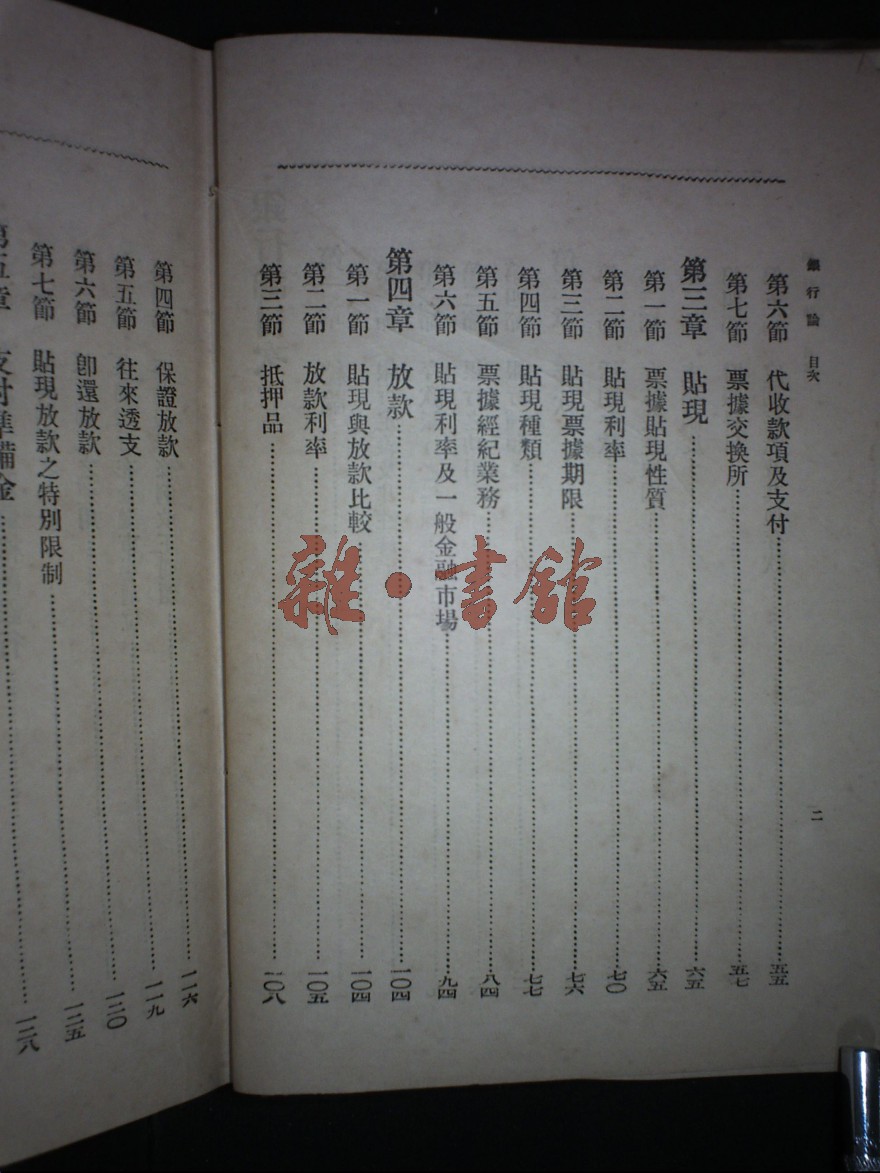 銀行論 目次
二
第六節 代收款項及支付……五五
第七節 票據交換所……五七
第三章 貼現……六五
第一節 票據貼現性質……六五
第二節 貼現利率……七〇
第三節 貼現票據期限……七六
第四節 貼現種類……七七
第五節 票據經紀業務……八四
第六節 貼現利率及一般金融市場……九四
第四章 放款……一〇四
第一節 貼現與放款比較……一〇四
第二節 放款利率……一〇五
第三節 抵押品……一〇八
第四節 保證放款……一一六
第五節 往來透支……一一九
第六節 卽還放款……一二〇
第七節 貼現放款之特別限制……一二五
第五章 支付準備金……一二八
雜·書館